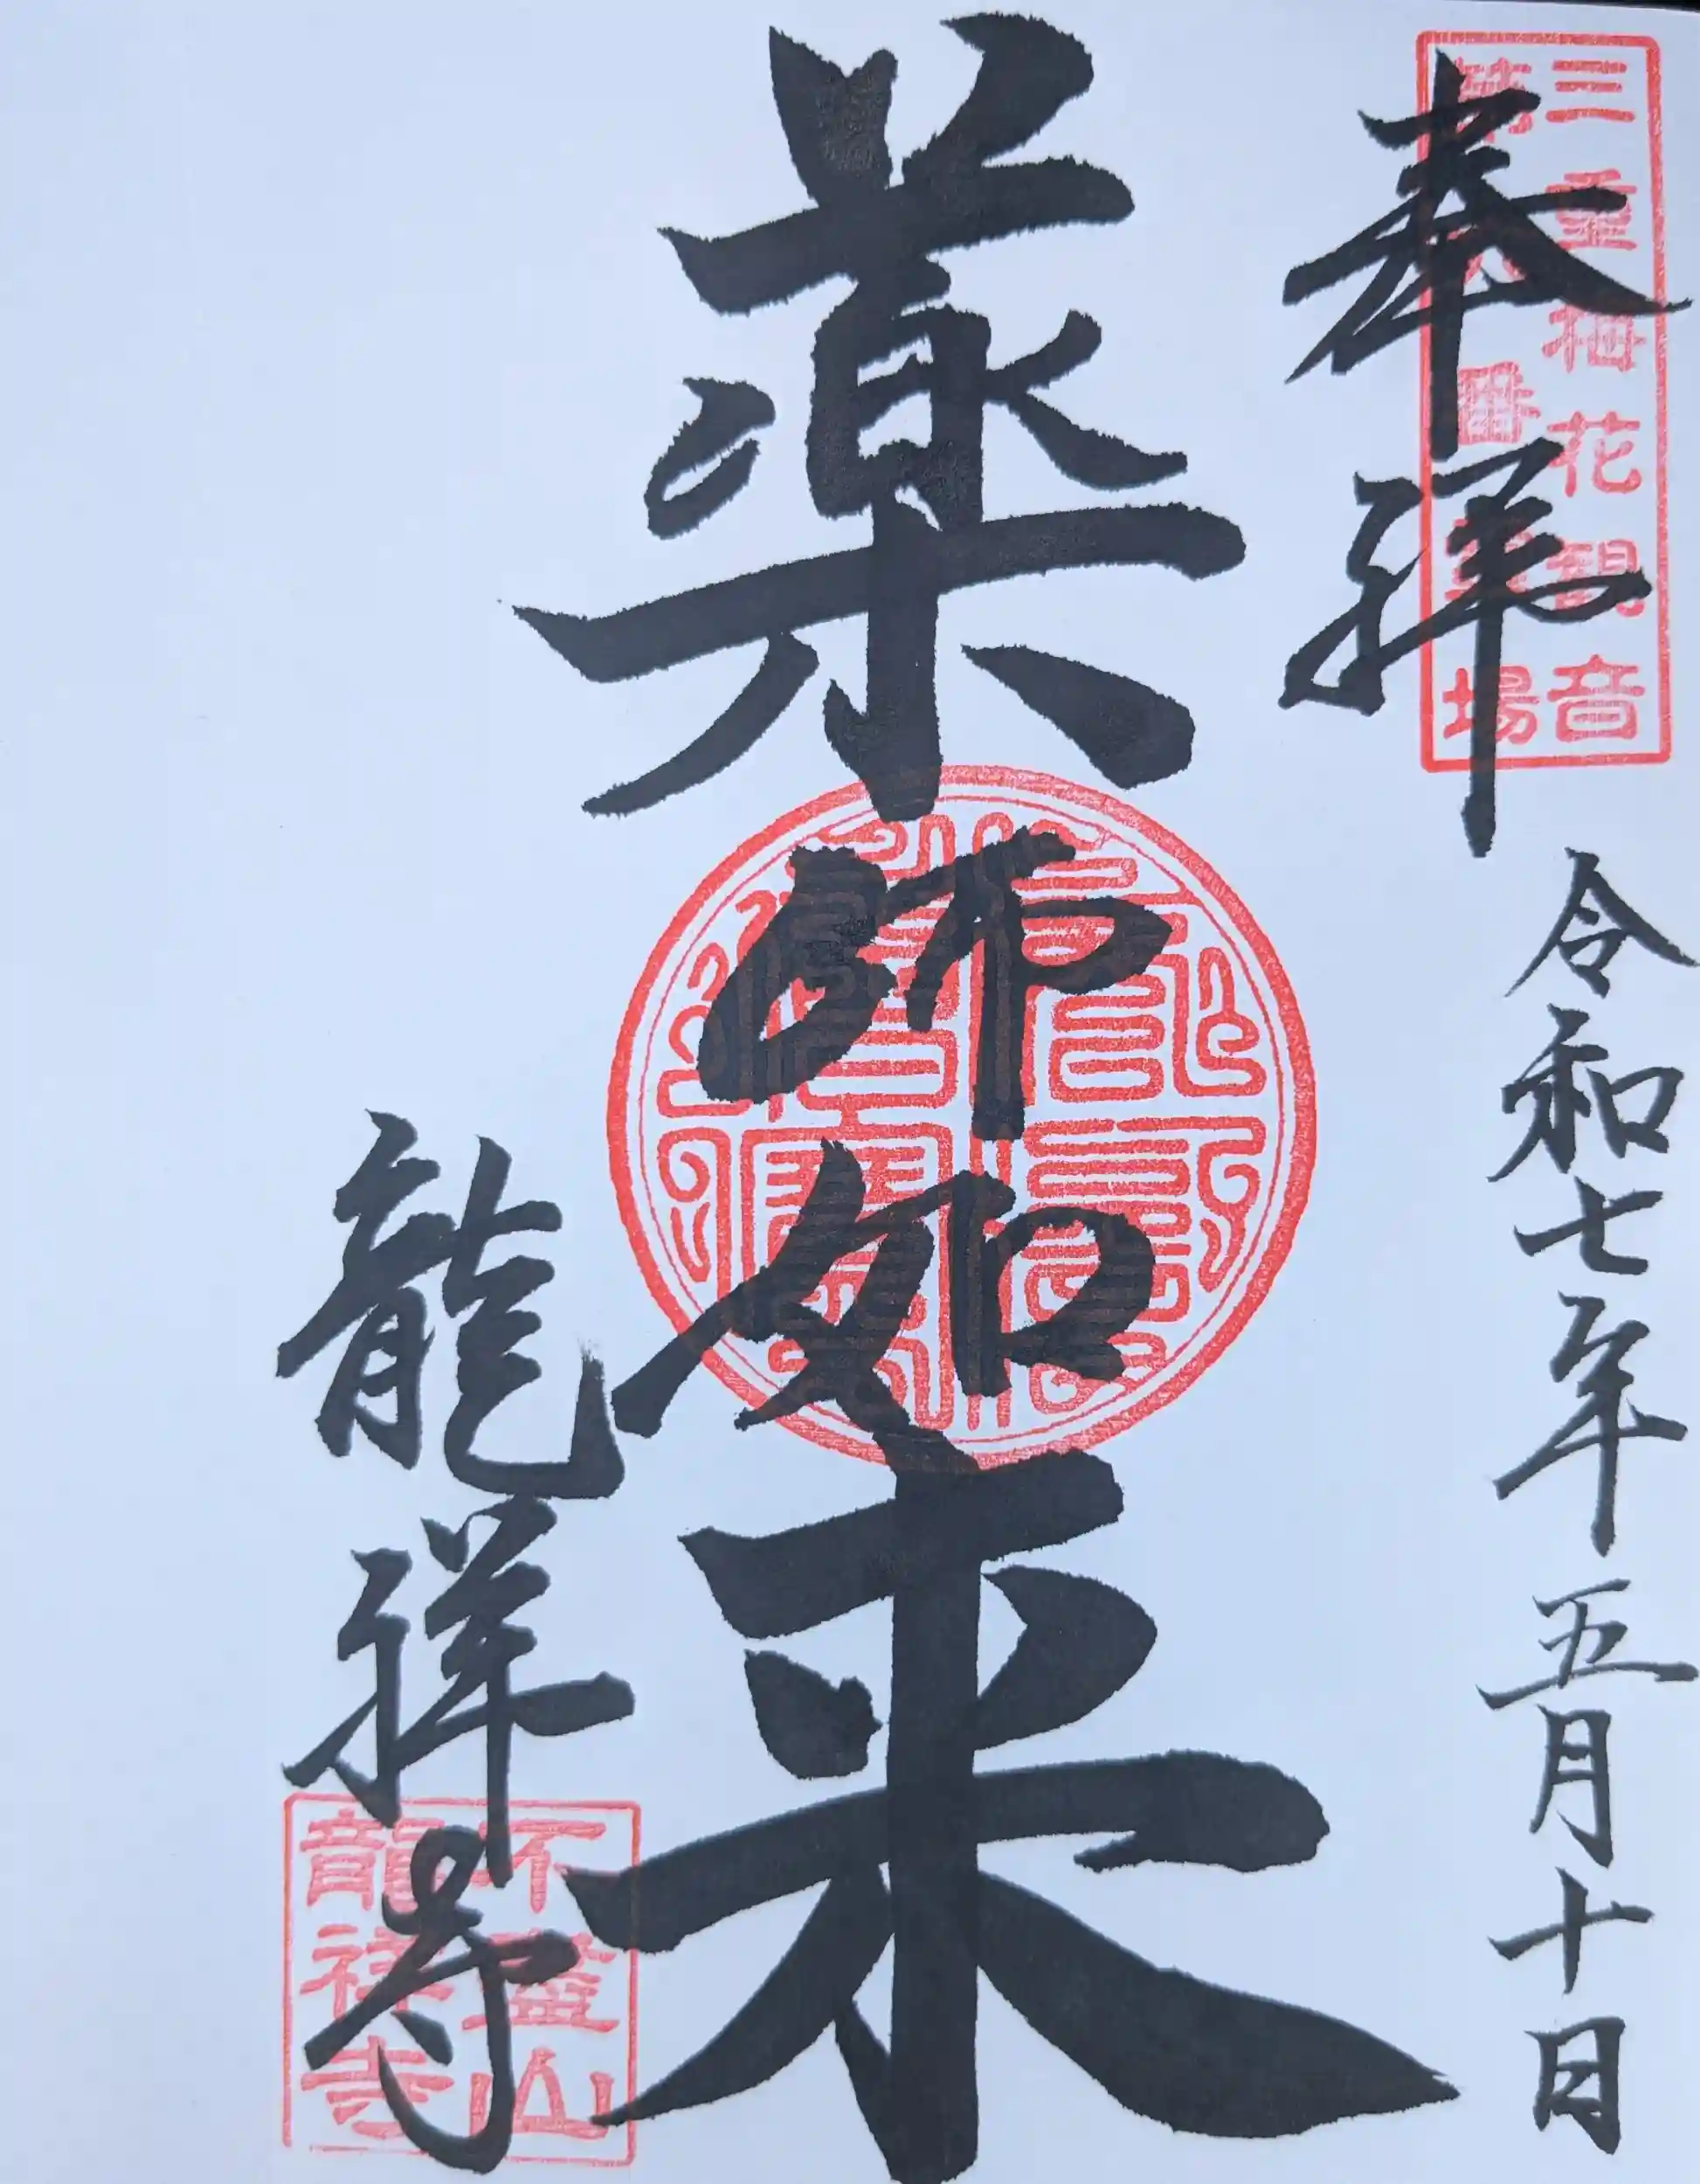 奉拝
三重梅花観音
番
場
令和七年五月十日
薬師如来
龍祥寺
山
龍祥寺